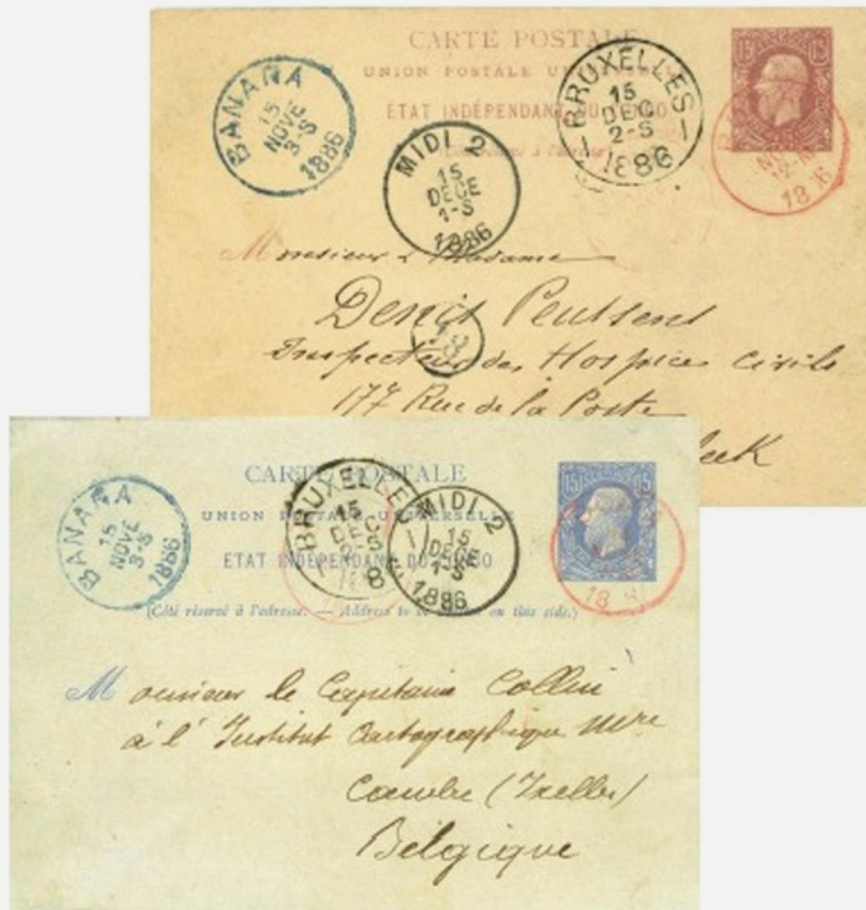 CARTE POSTALE
UNION POSTALE
ÉTAT INDÉPENDANT DU CONGO
15 15
BANANA
15
NOVE
3-S
1886
BRUXELLES
15
DEC
2-S
1886
MIDI 2
15
DECE
1-S
1886
18 6
Monsieur & Madame
Denis Peutsens
Inspecteur des Hospices Civils
177 Rue de la Poste
CARTE POSTALE
UNION POSTALE UNIVERSELLE
ÉTAT INDÉPENDANT DU CONGO
(Côté réservé à l'adresse. — Address to be on this side.)
15 15
BANANA
15
NOVE
3-S
1886
BRUXELLES
15
MIDI 2
15
DECE
1-S
1886
18
Monsieur le Capitaine Collin
à l'Institut Cartographique Mre
Cambre (Ixelles)
Belgique